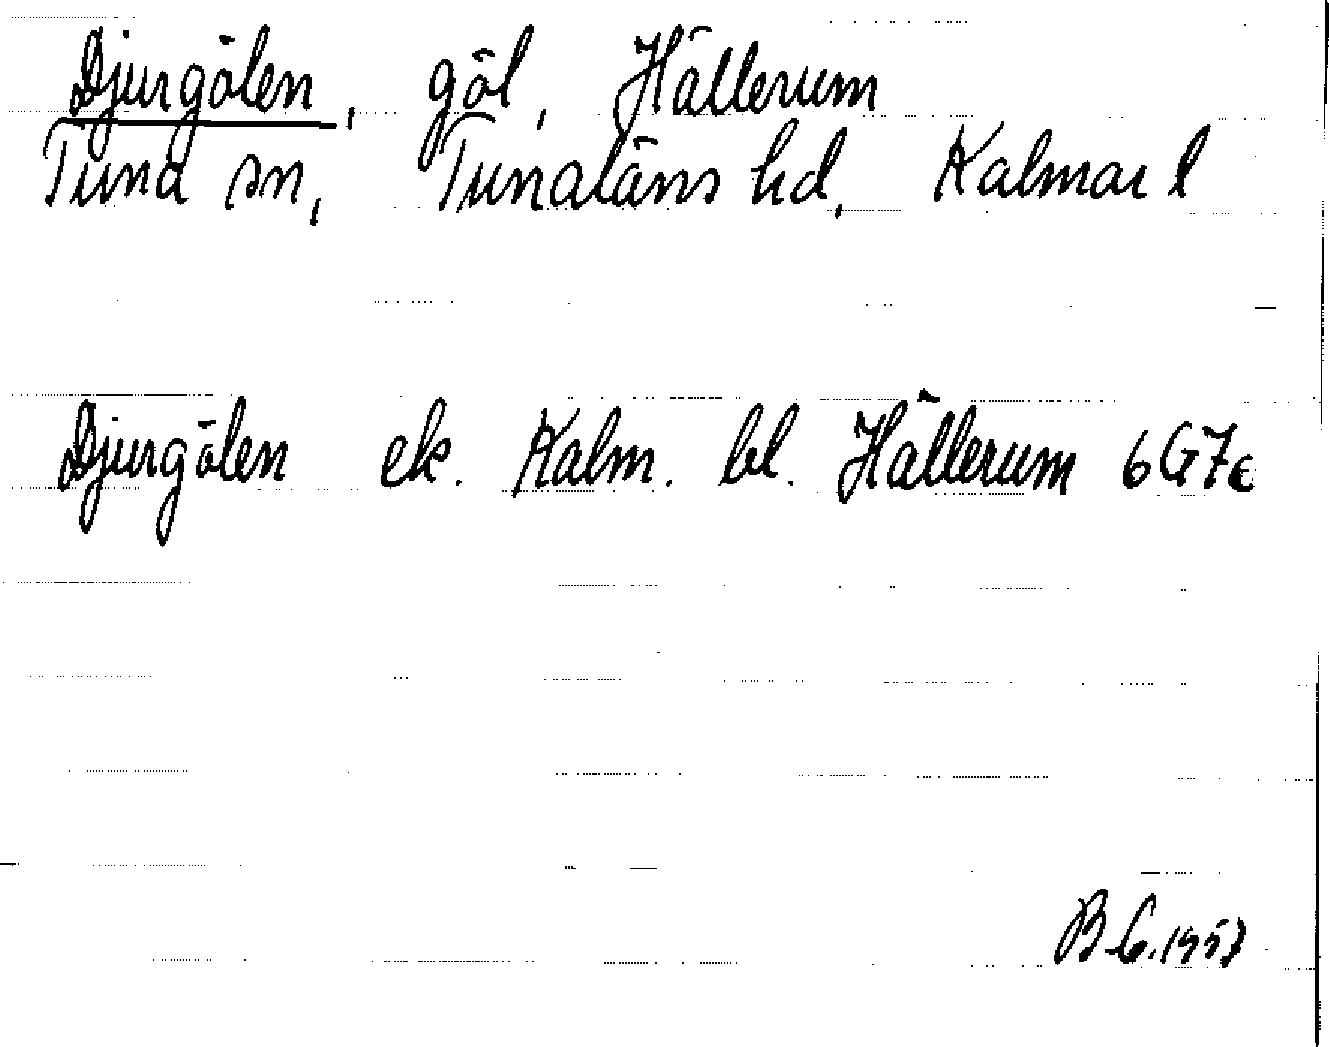 Djurgölen, göl, Hällerum
Tuna sn, Tunaläns hd, Kalmar l
Djurgölen ek. Kalm. bl. Hällerum 6G7e
1957